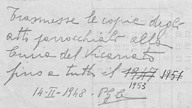 Trasmesse le copie degli
atti parrocchiali alla
Curia del Vicariato
fino a tutto il 1947 1951
1953
14-II-1948 -